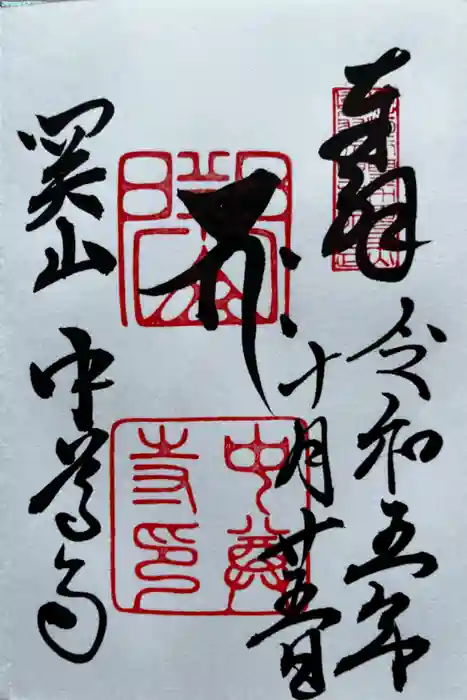 奉拝
令和五年
十月廿五日
関山
中尊寺
中尊
寺印